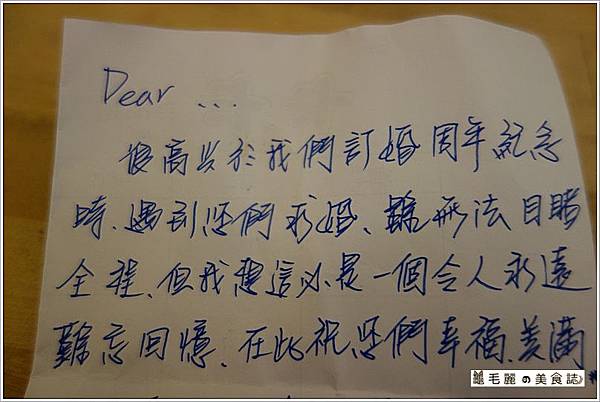 Dear ...
很高興於我們訂婚周年紀念
時、遇到您們求婚、雖無法目睹
全程、但我想這必是一個令人永遠
難忘回憶、在此祝您們幸福、美滿
毛麗の美食誌